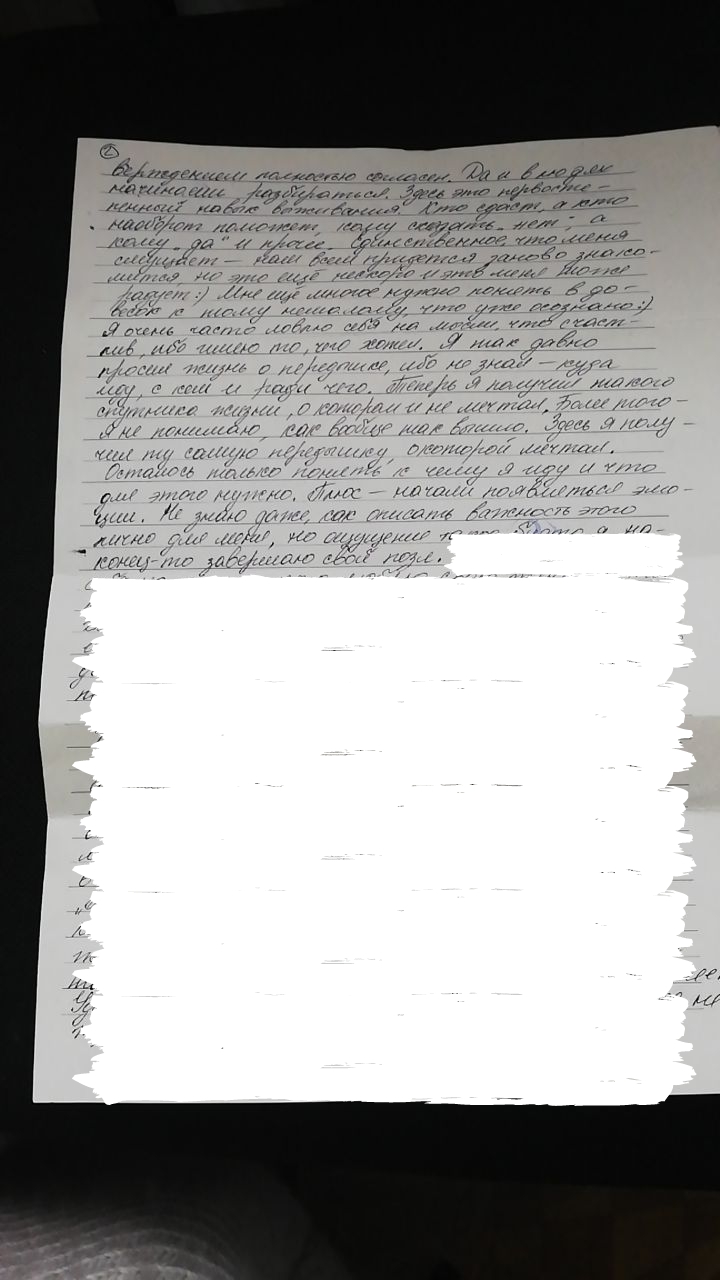 ②
верждением полностью согласен. Да и в людях
начинаешь разбираться. Здесь это первосте-
пенный навык выживания. Кто сдаст, а кто
наоборот поможет, кому сказать „нет", а
кому „да" и проче. Единственное, что меня
смущает – нам всем придется заново знако-
мится, но это ещё нескоро и это меня тоже
радует :) Мне ещё многое нужно понять в до-
весок к тому немалому, что уже осознано :)
Я очень часто ловлю себя на мысли, что счаст-
лив, ибо имею то, чего хотел. Я так давно
просил жизнь о передышке, ибо не знал – куда
иду, с кем и ради чего. Теперь я получил такого
спутника жизни, о котором и не мечтал. Более того –
я не понимаю, как вообще так вышло. Здесь я полу-
чил ту самую передышку, о которой мечтал.
Осталось только понять к чему я иду и что
для этого нужно. Плюс – начали появляться эмо-
ции. Не знаю даже, как описать важность этого
лично для меня, но ощущение будто я на-
конец-то завершаю свой пазл.